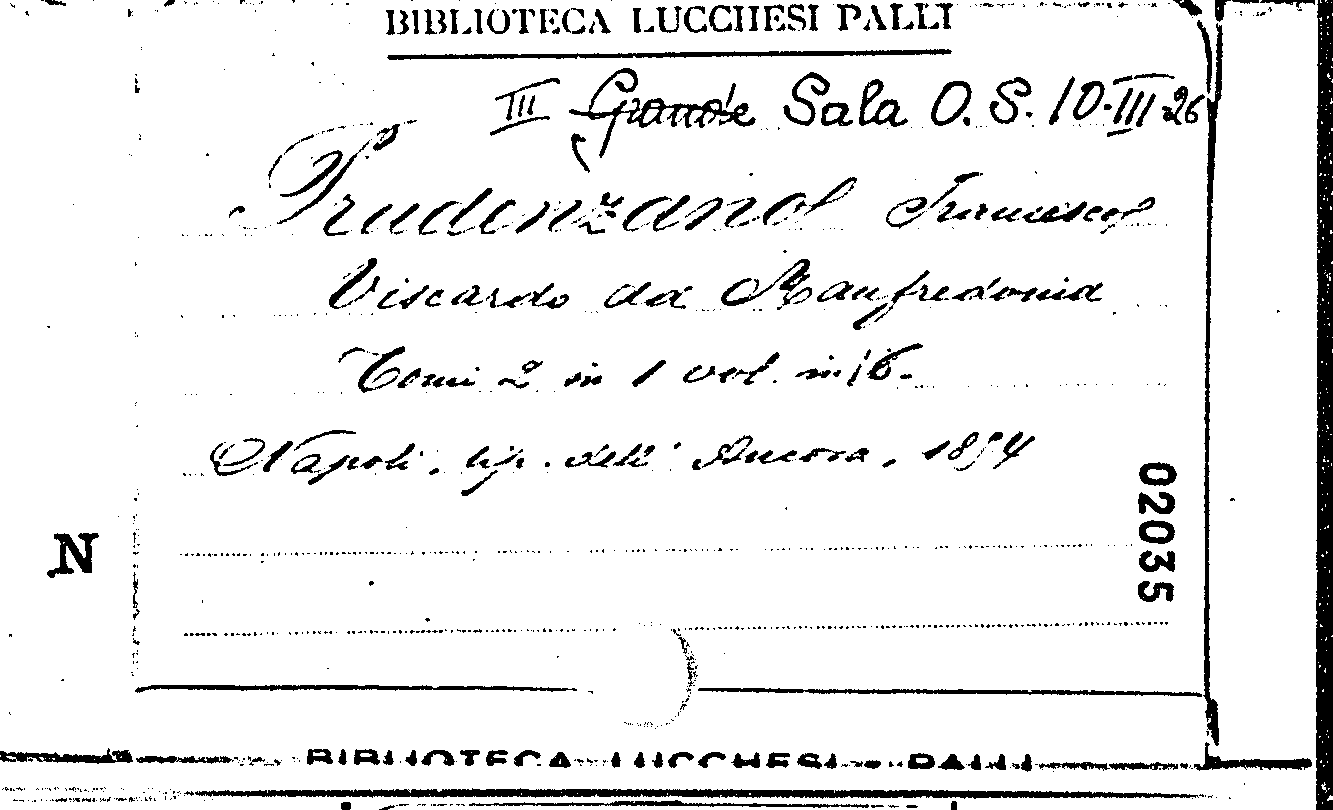 BIBLIOTECA LUCCHESI PALLI
III Grande Sala O. S. 10.III.26
Prudenzano Francesco
Viscardo da Manfredonia
Tomi 2 in 1 vol. in 16.
Napoli, tip. dell'Ancora, 1854
02035
N
BIBLIOTECA LUCCHESI - PALLI